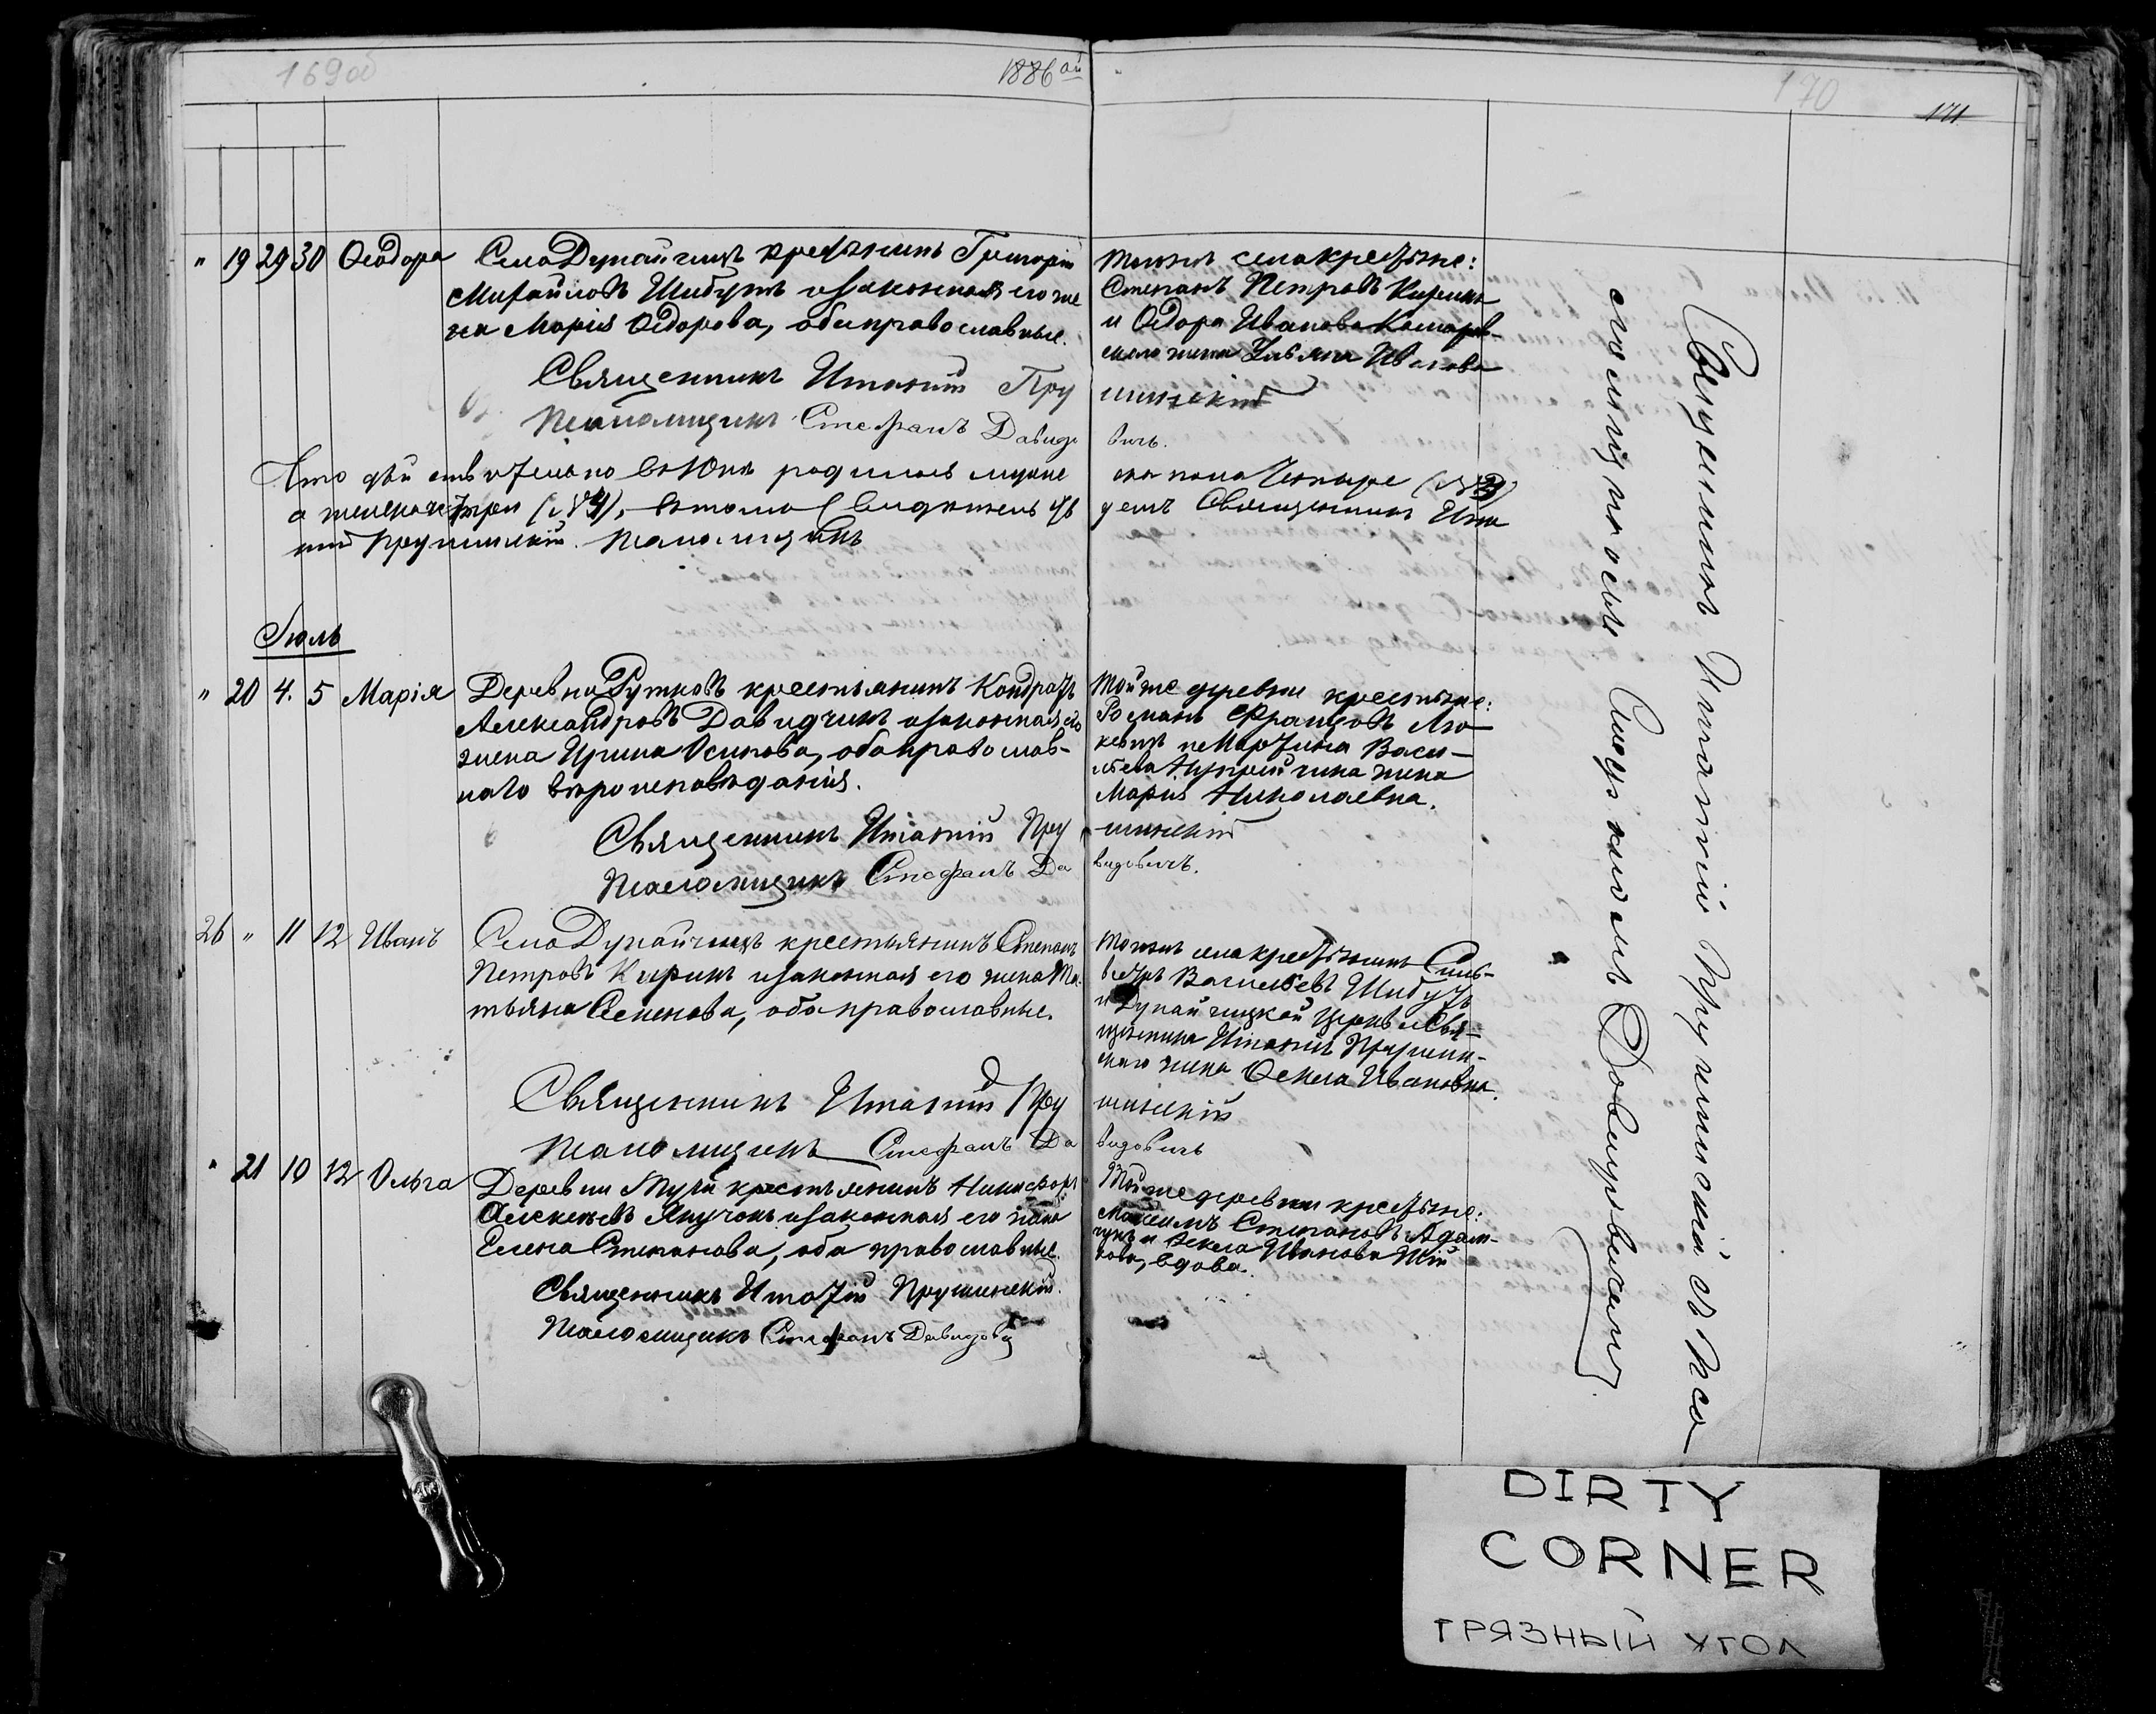 169об
1886ой
170
171
" 19 29 30 Ѳеодора Села Дунайчицъ крестьянинъ Григорій
Михайловъ Шибутъ и законная его же
на Марія Ѳедорова, оба православные.
Священникъ Игнатій Пру
Псаломщикъ Стефанъ Давидо
Того же села крестьяне:
Степанъ Петровъ Киринъ
и Ѳедора Иванова
жена Ульяна Иванова
шинскій
вичъ.
Что дѣйствительно въ Юнѣ родилось мужс
каго пола четыре
а женскаго три въ томъ свидѣтельств
уемъ Священникъ Игна
тій Прушинскій. Псаломщикъ
Іюль
" 20 4. 5 Марія Деревни Рутковъ крестьянинъ Кондратъ
Александровъ Давидчикъ и законная его
жена Ирина Осипова, оба православ-
наго вѣроисповѣданія.
Священникъ Игнатій Пру
Псаломщикъ Стефанъ Да
Той же деревни крестьяне:
Романъ Францовъ
Васи-
льева жена
Марія Николаевна.
шинскій
видовичъ.
26 " 11 12 Иванъ Села Дунайчицъ крестьянинъ Степанъ
Петровъ Киринъ и законная его жена Та-
тьяна Семенова, оба православные.
Священникъ Игнатій Пру
Псаломщикъ Стефанъ Да
Того же села крестьянинъ Силь-
вестръ Васильевъ Шибутъ
и Дунайчицкой церкви Свя-
щенника Игнатія Прушин-
скаго жена Ѳекла Ивановна.
шинскій
видовичъ
" 21 10 12 Ольга Деревни Тучи крестьянинъ Никифоръ
Алексѣевъ Янучокъ и законная его жена
Елена Степанова, оба православные.
Священникъ Игнатій Прушинскій.
Псаломщикъ Стефанъ Давидов
Той же деревни крестьяне:
Максимъ Степановъ Адам-
чукъ и Ѳекла Иванова
вдова.
Священникъ Игнатій Прушинскій съ Псало-
мщикомъ Стефаномъ Давидовичемъ
DIRTY
CORNER
ГРЯЗНЫЙ УГОЛ